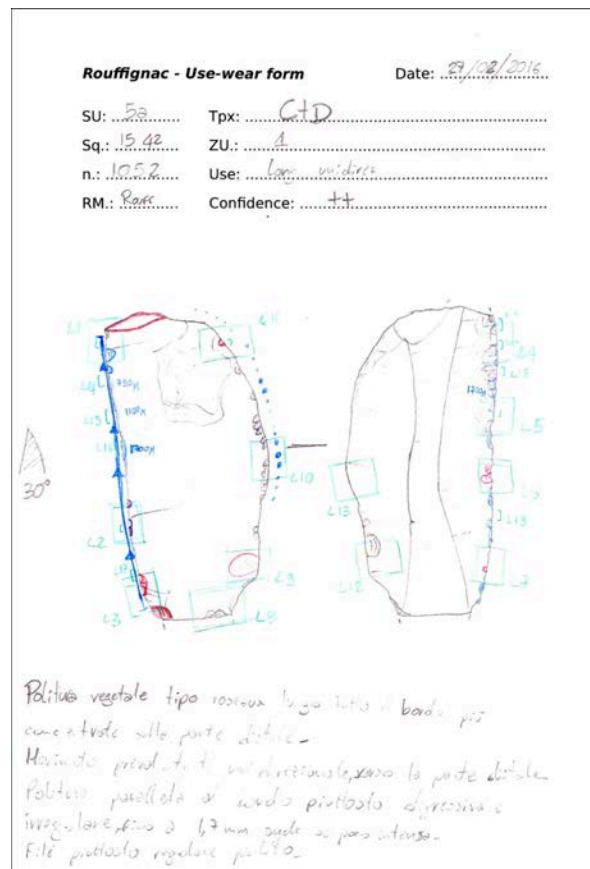 Rouffignac - Use-wear form Date: 27/02/2016
SU: 5a Tpx: C+D
Sq.: 15 42 ZU.: 1
n.: 1052 Use: Long. unidirez
RM.: Confidence: ++
L1 L11
L4 750µ
L15 1100µ
L16 1200µ
L10
30°
L2
L3 L9
L8
L4
L15
1200µ
L5
L6
L13 L18
L12 L7
Politura vegetale tipo roseaux lungo tutto il bordo più
concentrate sulla parte distale.
Movimento unidirezionale, verso la parte distale.
Politura parallela al bordo piuttosto
irregolare, fino a 1,7 mm anche se poco intensa.
Filo piuttosto regolare